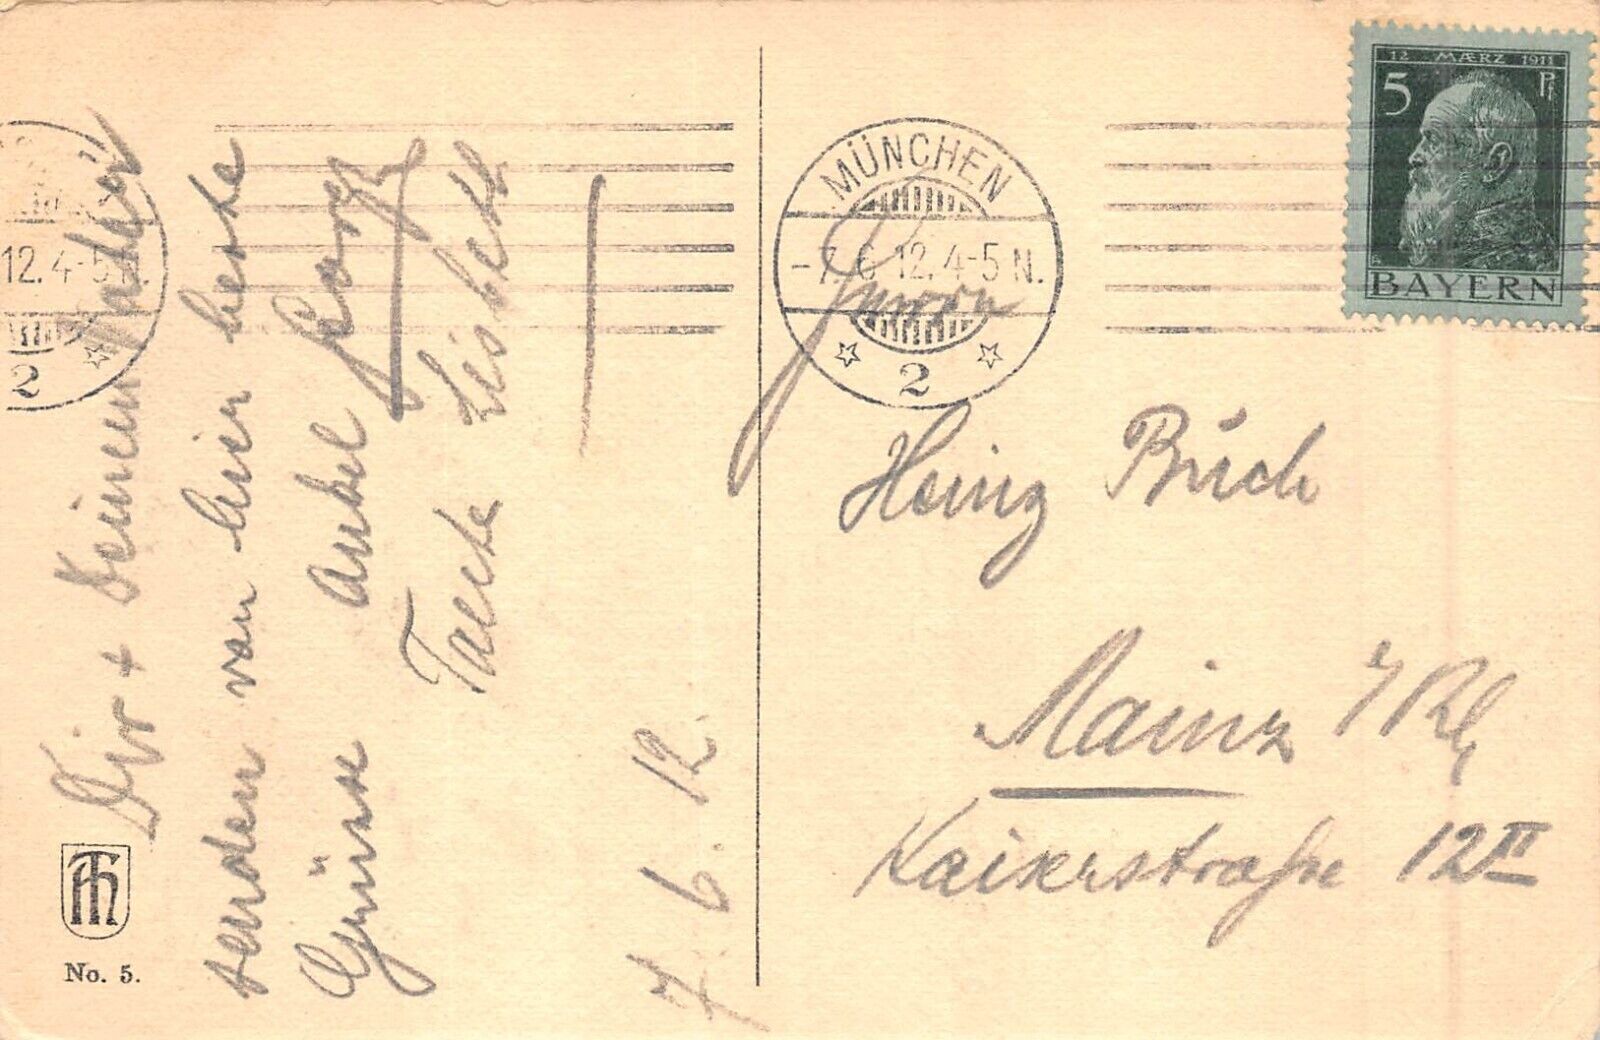 Dir + Deinem Vater
senden von hier herzl.
Grüsse Onkel Georg
Tante Lisbeth
7. 6. 12.
No. 5.
MÜNCHEN
-7.6.12.4-5 N.
2
12.4-5 N.
2
12 MÆRZ 1911
5 Pf
BAYERN
Heinz Buch
Mainz a/Rh.
Kaiserstraße 12 II